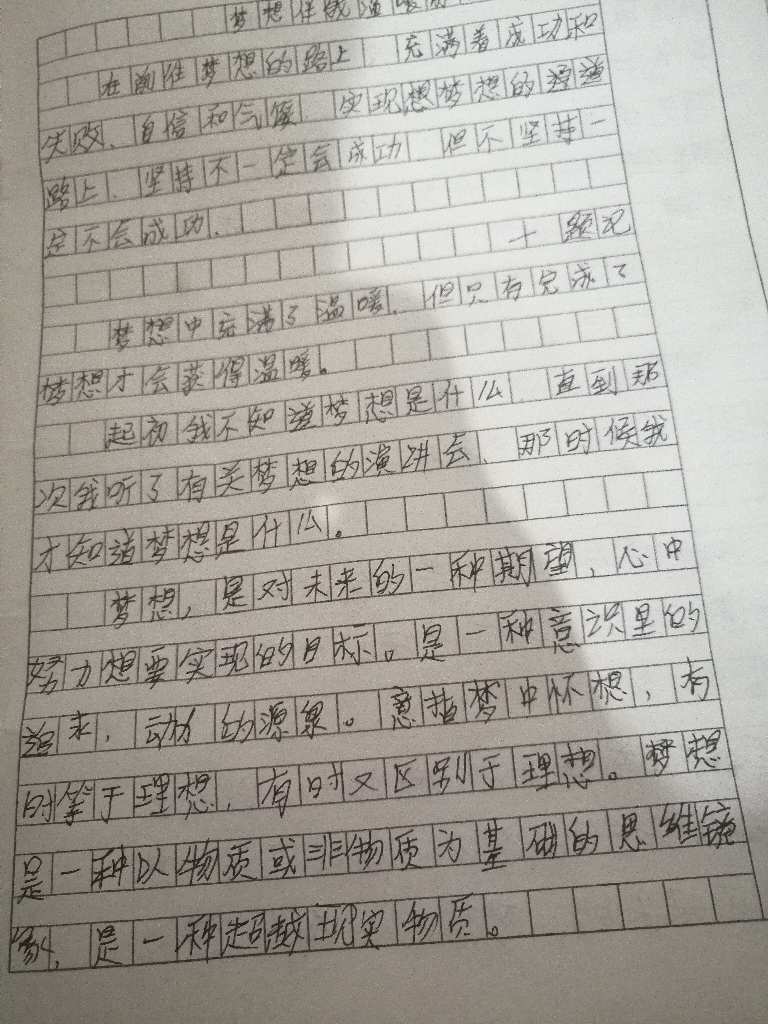 梦想伴我温暖
在前往梦想的路上 充满着成功和
失败、自信和气馁、实现想梦想的道
路上、坚持不一定会成功、但不坚持一
定不会成功、
一 题记
梦想中充满了温暖、但只有完成了
梦想才会获得温暖。
起初我不知道梦想是什么、直到那
次我听了有关梦想的演讲会、那时候我
才知道梦想是什么。
梦想，是对未来的一种期望，心中
努力想要实现的目标。是一种意识里的
追求，动力的源泉。意指梦中怀想，有
时等于理想，有时又区别于理想。梦想
是一种以物质或非物质为基础的思维镜
象，是一种超越现实物质。